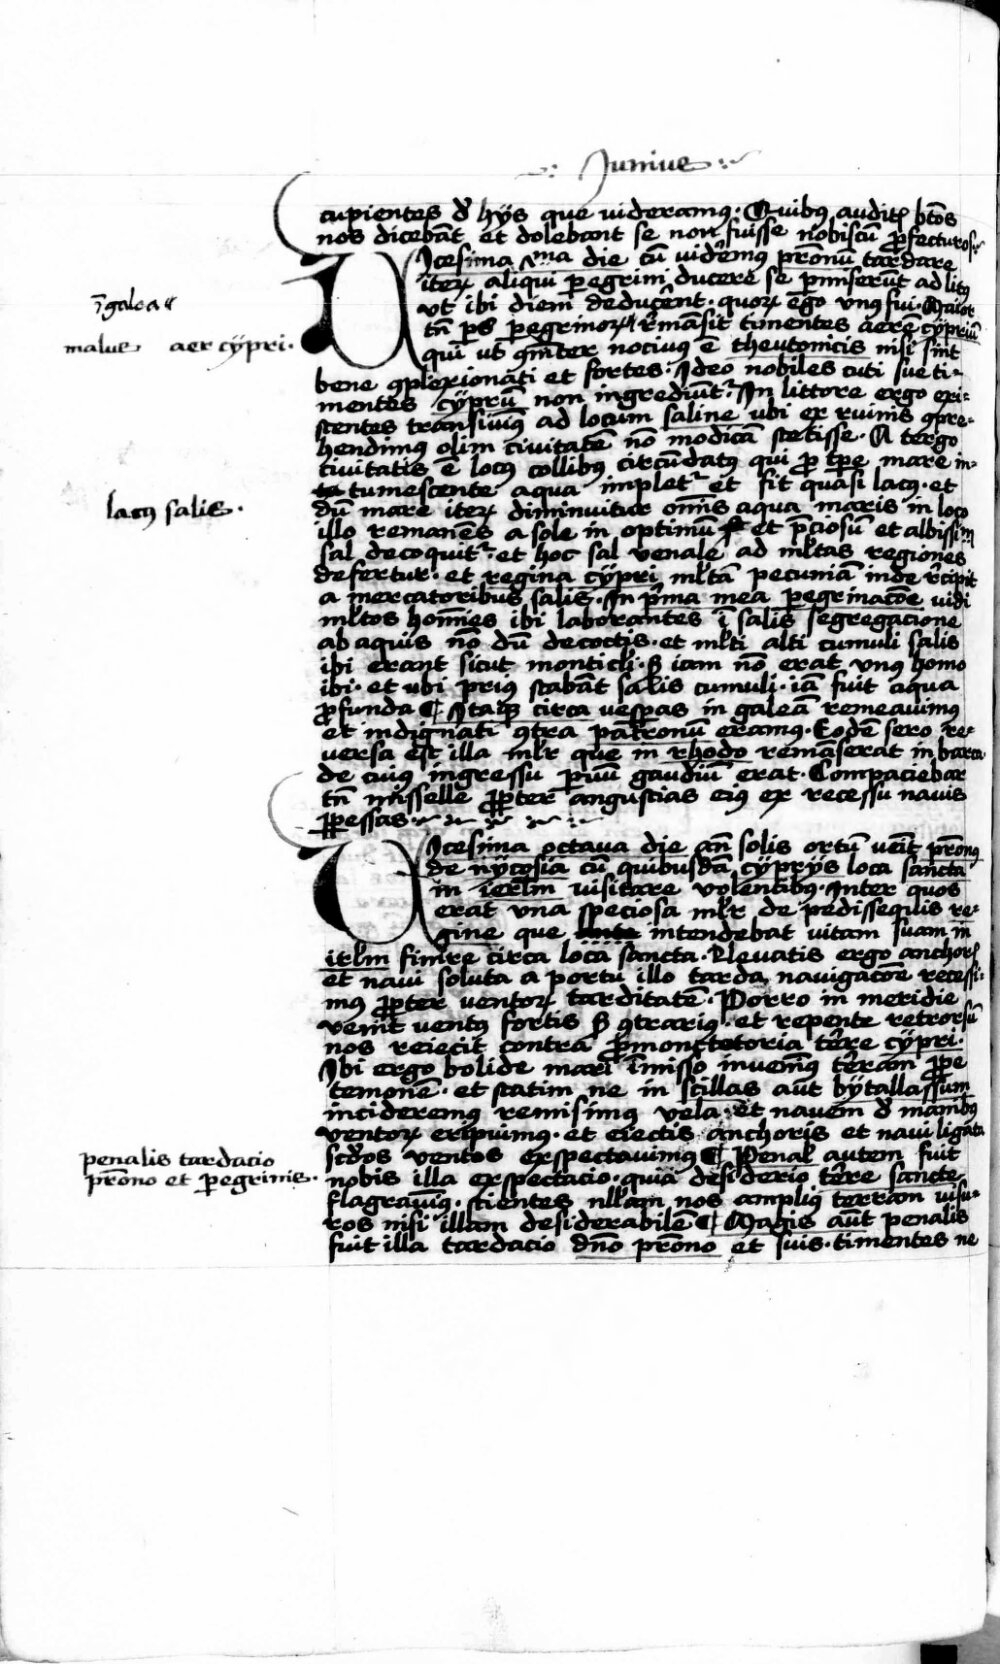 Junius
cupientes d' hijs que uideramus. Quibus auditis btos
nos dicebāt et dolebant se non fuisse nobiscū ꝓfecturos
Vicesima vijma die cū uidremus prōnū tardare
iterꝝ aliqui peregrini ducere se pmiserūt ad litus
vt ibi diem deducerent. quorꝝ ego vnus fui. Maior
tn̄ ps peregrinorꝝ rmāsit timentes aerē cypriū
qui vt cōiter nociuus ē theutonicis nisi sint
bene ꝯplexionati et fortes. Ideo nobiles cuti sue ti-
mentes cyprū non ingrediūtr. In littore ergo exi-
stentes transiuimus ad locum saline ubi ex ruinis ꝯpre-
hendimus olim ciuitatē nō modicā stetisse. A tergo
ciuitatis ē locus collibus circūdatus qui ꝓ tpe mare in-
tumescente aqua impletr et fit quasi lacus. et
dū mare iterꝝ diminuitur omīs aqua maris in loco
illo remanēs a sole in optimū et p̄ciosū et albissimū
sal decoquitr. et hoc sal venale ad mltas regiones
defertur. et regina cypri mltā pecuniā inde rcipit
a mercatoribus salis. In pma mea peregrinacōe vidi
mltos homīes ibi laborantes ī salis segregacione
ab aquis nō dū decoctis. et mlti alti cumuli salis
ibi erant sicut monticli. s; iam nō erat vnus homo
ibi. et ubi prius stabāt salis cumuli. iā fuit aqua
ꝓfunda ¶ Itaqꝫ circa vesperas in galeā remeauimus
et indignati ꝯtra patronum eramus. Eodē sero re-
uersa est illa mlr que in rhodo remāserat in barca
de cuius ingressu paruū gaudiū erat. Compaciebar
tn̄ misselle ꝓpter angustias eius ex recessu nauis
ꝑpessas.
Vicesima octaua die an̄ solis ortū ueīt prōnus
de nycosia cū quibusdā cyprijs loca sancta
in ierl̄m uisitare volentibus. Inter quos
erat vna speciosa mlr de pedissequis re-
gine que intendebat uitam suam in
ierl̄m finire circa loca sancta. Eleuatis ergo anchoris
et naui soluta a portu illo tarda nauigacōe recessi-
mus ꝓpter ventorꝝ tarditatē. Porro in meridie
venit ventus fortis s; ꝯtrarius. et repente retrorsū
nos reiecit contra ꝓmonctotoria terre cypri.
Ibi ergo bolide mari īmisso inuenimus terram ꝓpe
temonē. et statim ne in scillas aut bytallassum
incideremus remisimus vela. et nauem d' manibus
ventorꝝ eripuimus. et eiectis anchoris et naui ligata
scdos ventos exspectauimus ¶ Penal autem fuit
nobis illa exspectacio. quia desiderio terre sancte
flagrauimus. scientes nllam nos amplius terram uisu-
ros nisi illam desiderabilē ¶ Magis aut penalis
fuit illa tardacio dn̄o prōno et suis. timentes ne
ī galea
malus aer cypri.
lacus salis.
penalis tardacio
prōno et peregrinis.